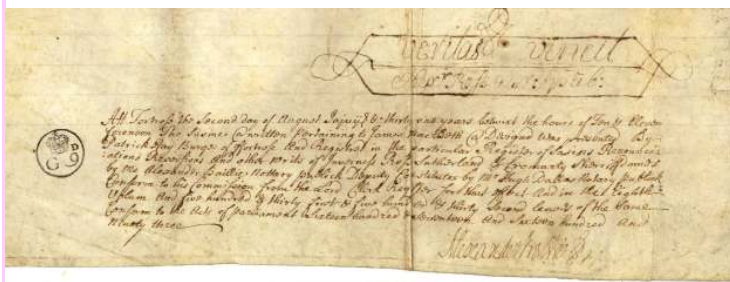 veritas vincit
Att Fortross the Second day of August Jajvijc & thirty one years betwixt the hours of Ten & Eleven
forenoon The Sasines above written pertaining to James MacBeth Designed was presented By
Patrick Hay Burges of ffortrose And Registrat in the particular Register of Sasines Renuncia
ciations Reversions And other writts of Inverness Ross Sutherland & Cromarty Sheriffdoms
by Me Alexander Baillie Nottary publick Deputy Constitute by Mr Hugh Dallas Notary publick
Conform to his Commission from the Lord Clerk Register for that effect And in the Eighth
Volum And five hundred & thirty first & five hundred & thirty Second leaves of the Same
Conform to the Acts of parliament Sixteen hundred & Seventeen And Sixteen hundred And
Ninety three
G